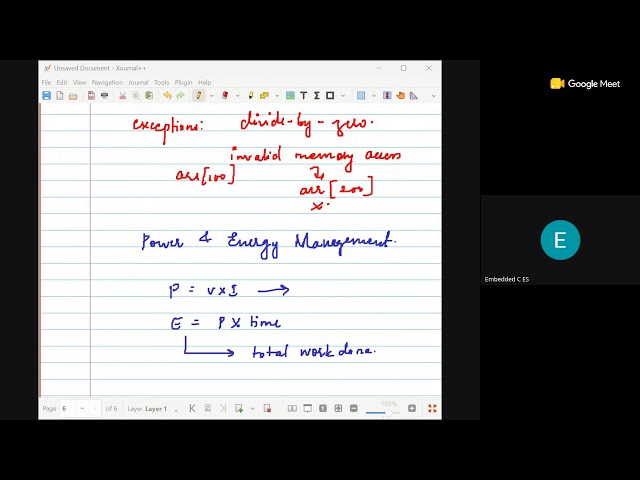 Unsaved Document - Xournal++
File Edit View Navigation Journal Tools Plugin Help
exceptions: divide-by-zero.
invalid memory acess
arr[100]
arr[200]
x.
Power & Energy Management.
P = V x I →
E = P x time
→ total work done.
Page 6 of 6 Layer Layer 1 193%
Google Meet
E
Embedded C ES